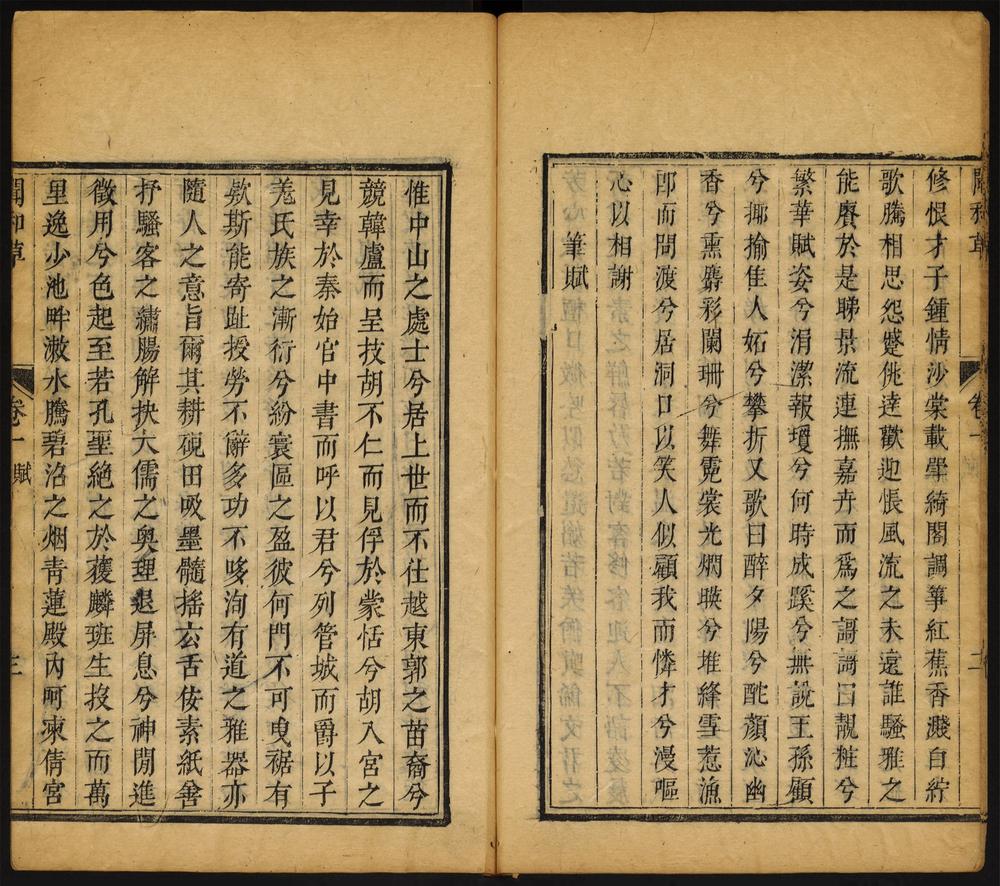 卷一
二
修恨才子鍾情沙棠載酒綺閣調箏紅蕉香濺自紵
歌騰相思怨蹙佻達歡迎悵風流之未遠誰騷雅之
能賡於是睇景流連撫嘉卉而為之謌謌曰靚粧兮
繁華賦姿兮涓潔報瓊兮何時成蹊兮無說王孫顧
兮揶揄佳人妬兮攀折又歌曰醉夕陽兮酡顏沁幽
香兮熏麝彩闌珊兮舞霓裳光燜暎兮堆絳雪惹漁
郎而問渡兮居洞口以笑人似顧我而憐才兮漫嘔
心以相謝
筆賦
惟中山之處士兮居上世而不仕越東郭之苗裔兮
競韓盧而呈技胡不仁而見俘於蒙恬兮胡入宮之
見幸於秦始官中書而呼以君兮列管城而爵以子
羗氏族之漸衍兮紛寰區之盈彼何門不可曳裾有
欵斯能寄趾授勞不辭多功不哆洵有道之雅器亦
隨人之意旨爾其耕硯田吸墨髓搖玄舌侫素紙舍
抒騷客之繡腸解抉大儒之奥理退屏息兮神閒進
徵用兮色起至若孔聖絶之於獲麟班生投之而萬
里逸少池畔漱水騰碧沼之烟青蓮殿內呵凍倩宮
卷一 賦
三